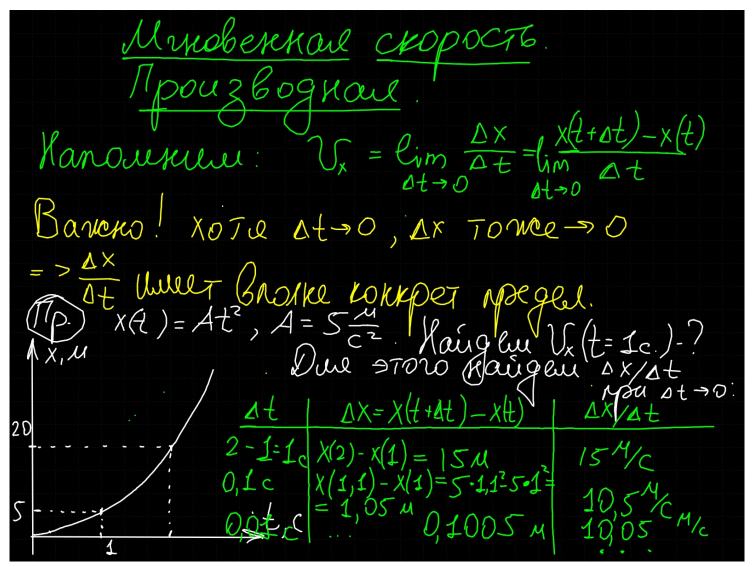 Мгновенная скорость.
Производная.
Напомним: Vx = lim Δt→0 Δx/Δt = lim Δt→0 x(t+Δt)−x(t)/Δt
Важно! хотя Δt→0, Δx тоже→0
=> Δx/Δt имеет вполне конкрет предел.
Пр. x(t) = At², A = 5 м/с². Найдем Vx(t=1c.)-?
Для этого найдем Δx/Δt
при Δt→0:
x, м
20
5
1
t, c
Δt | Δx = x(t+Δt) − x(t) | Δx/Δt
2−1=1c | x(2) − x(1) = 15 м | 15 м/c
0,1 c | x(1,1) − x(1) = 5·1,1²−5·1² =
= 1,05 м | 10,5 м/c
0,01 c | ... 0,1005 м | 10,05 м/c
...